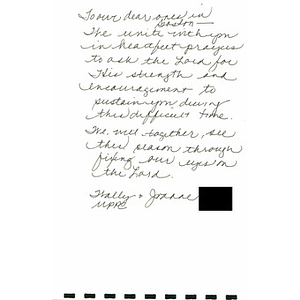 To our dear ones in
Boston —
We unite with you
in heartfelt prayers
to ask the Lord for
His strength and
encouragement to
sustain you during
this difficult time.
We will together, see
this season through
fixing our eyes on
the Lord.
Wally & Joanne